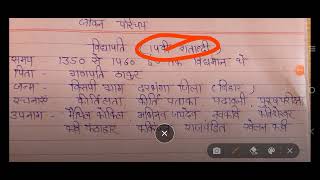 जीवन परिचय
विद्यापति (14वी शताब्दी)
समय - 1350 से 1460 ई० तक विद्यमान थे
पिता - गणपति ठाकुर
जन्म - बिसपी ग्राम दरभंगा जिला (बिहार)
रचनाएँ कीर्तिलता कीर्ति पताका पदावली पुरुषपरीक्षा
उपनाम - मैथिल कोकिल अभिनव जयदेव